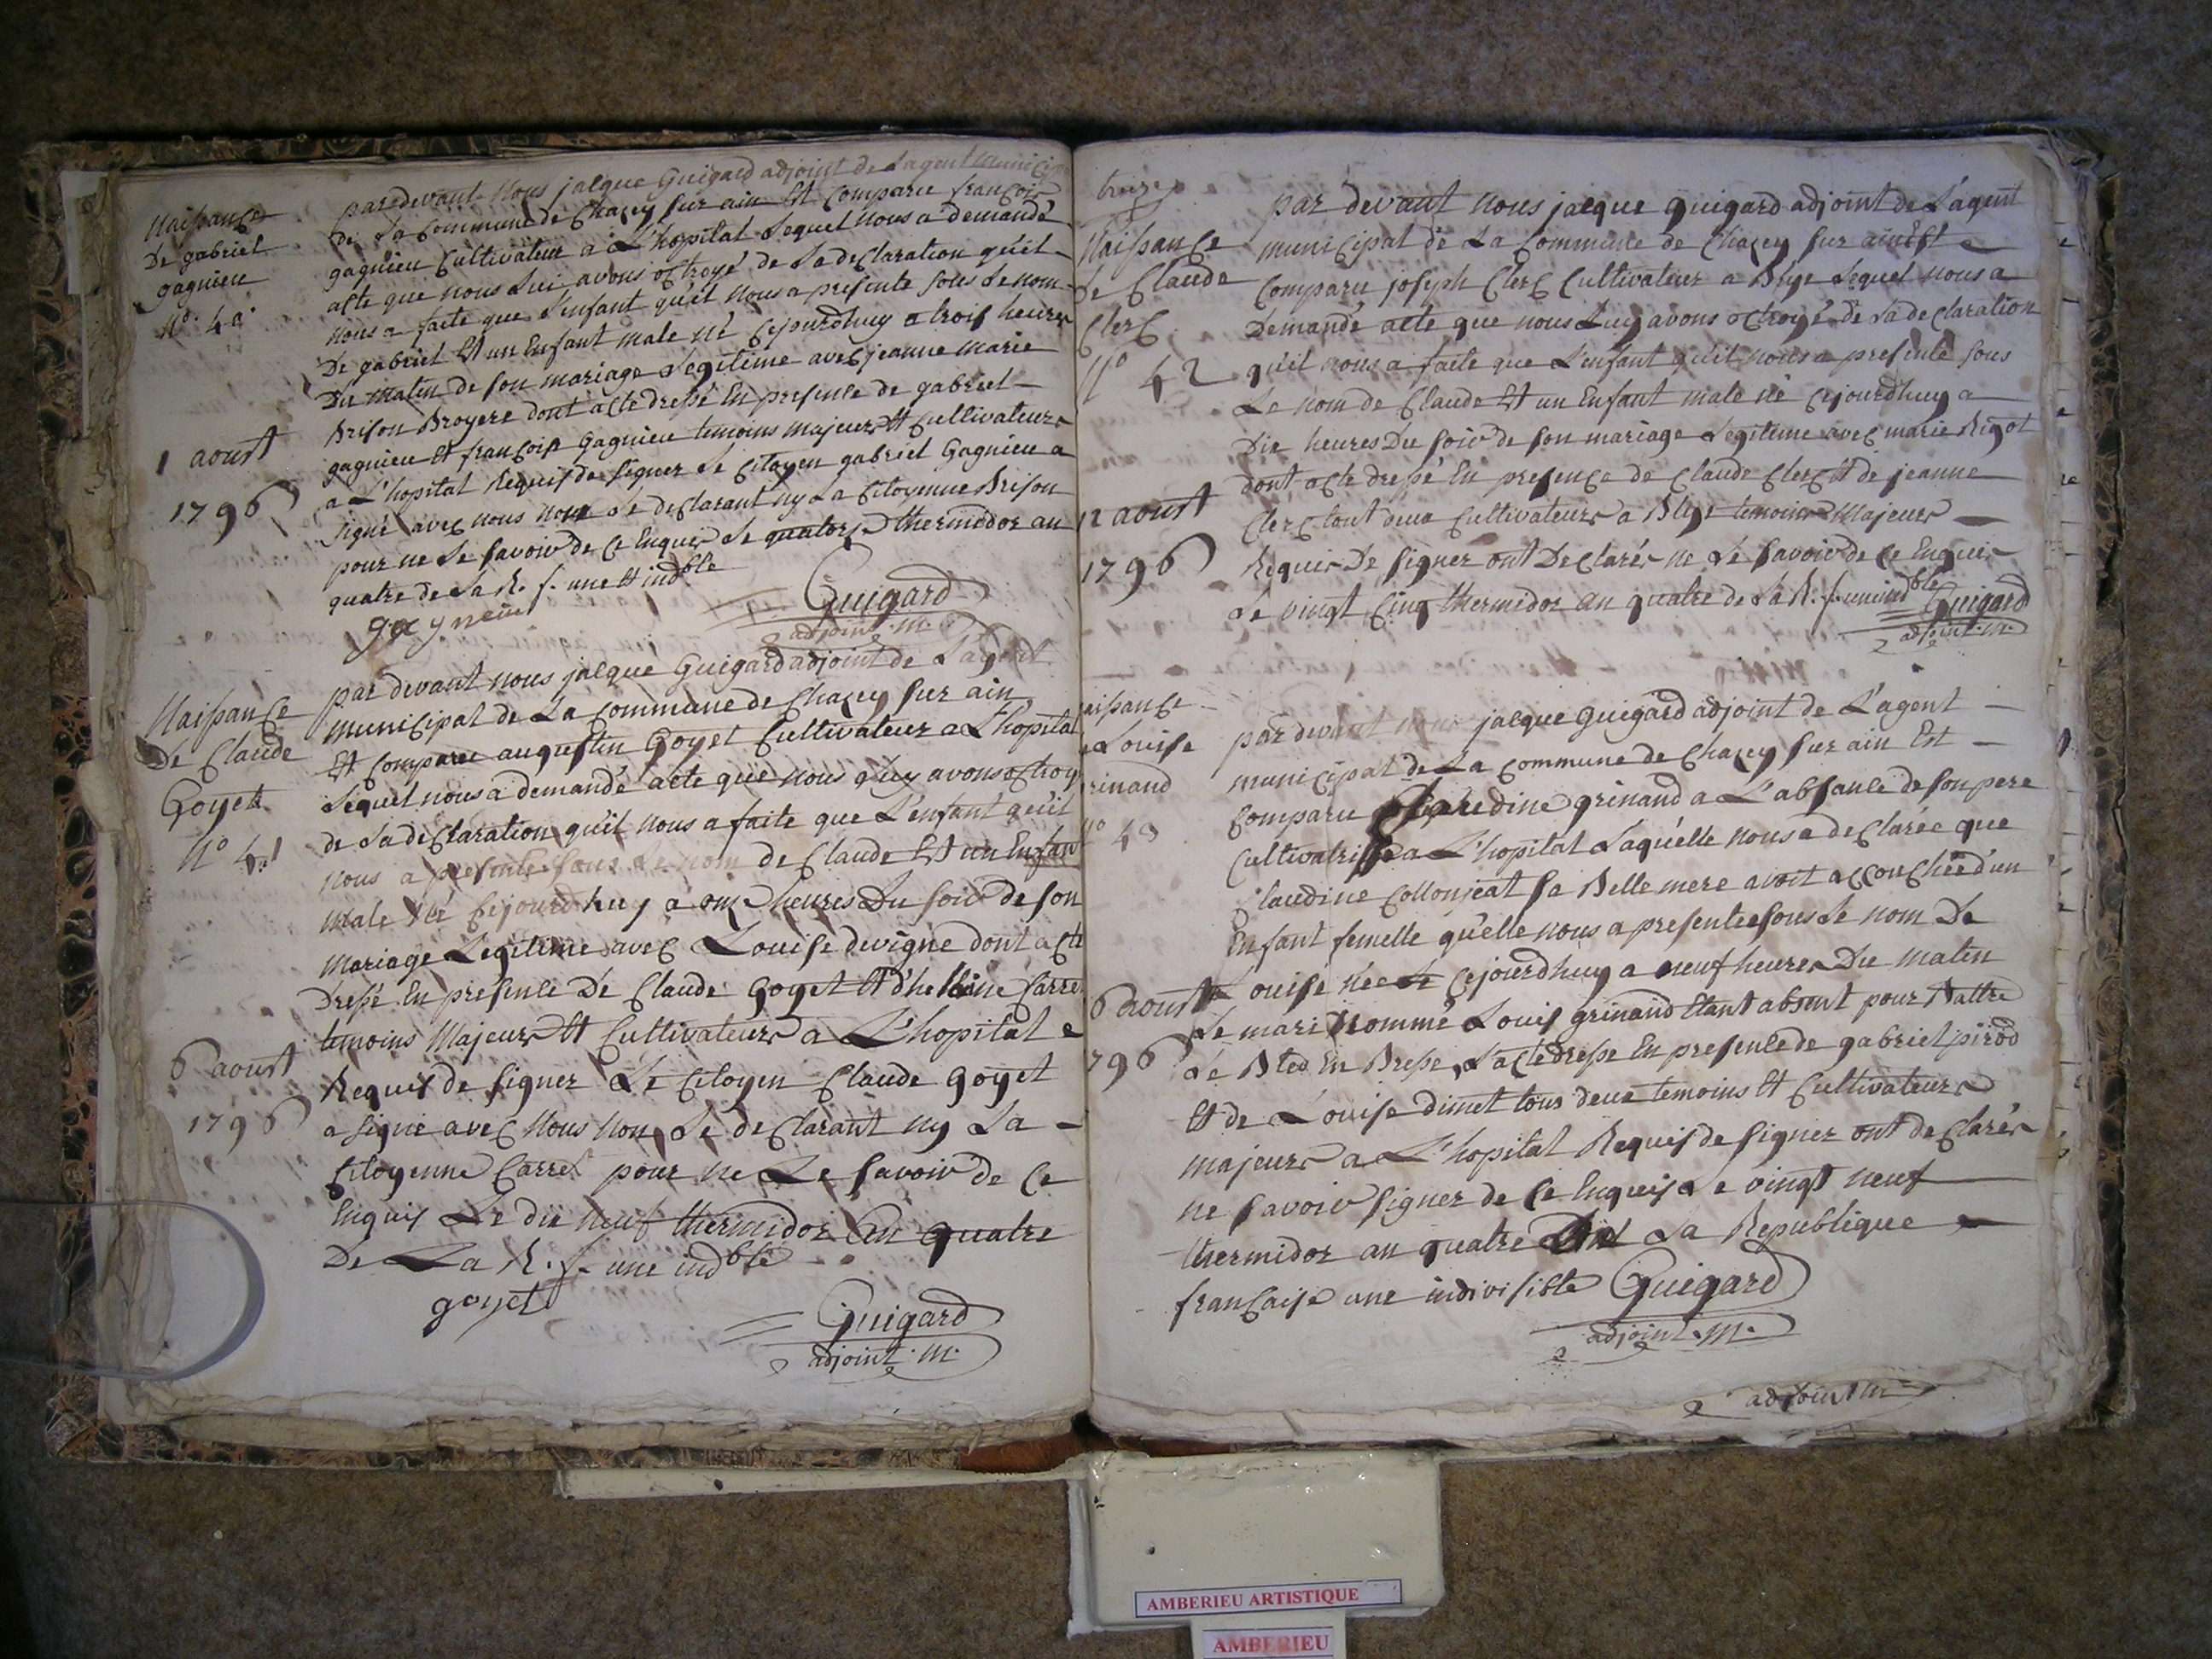 Naissance
De gabriel
gagnieu
N°. 40
1 aoust
1796
par devant Nous jacque Guigard adjoint de Lagent municip
de La Commune de Chazey sur ain Est Comparu françois
gagnieu Cultivateur a L'hopital Lequel Nous a demandé
acte que nous Lui avons octroyé de La declaration qu'il
nous a faite que L'enfant qu'il nous a presente sous Le nom
De gabriel Est un Enfant male né Cejourdhuy a trois heures
Du matin de son mariage Legitime avec jeanne marie
Brison Broyere dont acte dressé En presence de gabriel
gagnieu Et françoise Gagnieu temoins majeurs Et Cultivateurs
a L'hopital Requis de signer Le Citoyen gabriel Gagnieu a
signé avec nous non Le declarant ny La Citoyenne Brison
pour ne Le savoir de Ce Enquis Le quatorze thermidor an
quatre de La R. f. une Et indble
gagnieu
Guigard
adjoint .m.
Naissance
De Claude
Goyet
N° 41
6 aoust
1796
par devant nous jacque Guigard adjoint de L'agent
municipal de La Commune de Chazey sur ain
Est Comparu augustin Goyet Cultivateur a L'hopital
Lequel nous a demandé acte que nous Luy avons octroy
de La declaration qu'il nous a faite que L'enfant qu'il
nous a presente sous Le nom de Claude Est un Enfant
male Né Cejourdhuy a onze heures Du soir de son
mariage Legitime avec Louise devigne dont acte
Dressé En presence De Claude Goyet Et d'hellaine Carre
temoins Majeurs Et Cultivateurs a L'hopital
Requis de signer Le Citoyen Claude Goyet
a signé avec Nous Non Le declarant ny La
Citoyenne Carrel pour ne Le savoir de Ce
Enquis Le dix neuf thermidor an quatre
De La R. f. une indble
goyet
Guigard
adjoint .M.
treize
Naissance
de Claude
Clerc
N° 42
12 aoust
1796
par devant nous jacque guigard adjoint de L'agent
municipal de La Commune de Chazey sur ain Est
Comparu joseph Clerc Cultivateur a Blye Lequel nous a
Demandé acte que nous Luy avons octroyé de La declaration
qu'il nous a faite que L'enfant qu'il nous a presenté sous
Le nom de Claude Est un Enfant male né Cejourdhuy a
Dix heures Du soir de son mariage Legitime avec marie Rigot
dont acte dressé En presence de Claude Clerc Et de jeanne
Clerc tout deux Cultivateurs a Blye temoins Majeurs
Requis De signer ont Declarés ne Le savoir de Ce Enquis
Le vingt Cinq thermidor an quatre de La R. f. une indble
Guigard
adjoint .m.
aissance
e Louise
rinand
N° 43
6 aoust
796
par devant nous jacque guigard adjoint de L'agent
municipal de La Commune de Chazey sur ain Est
Comparu Claudine grinand a L'absance de son pere
Cultivatrisse a L'hopital Laquelle nous a declaree que
Claudine Collonjeat sa Belle mere avoit accouchée d'un
Enfant femelle qu'elle nous a presentée sous Le nom De
Louise née Cejourdhuy a neuf heures Du matin
Le mari Nommé Louis grinand Etant absent pour Battre
Le Bled En Bresse, L'acte dresse En presence de gabriel pirod
Et de Louise dimet tous deux temoins Et Cultivateurs
majeurs a L'hopital Requis de signer ont declarés
ne savoir signer de Ce Enquis Le vingt neuf
thermidor an quatre De La Republique
française une indivisible Guigard
adjoint .M.
adjoint m
AMBERIEU ARTISTIQUE
AMBERIEU